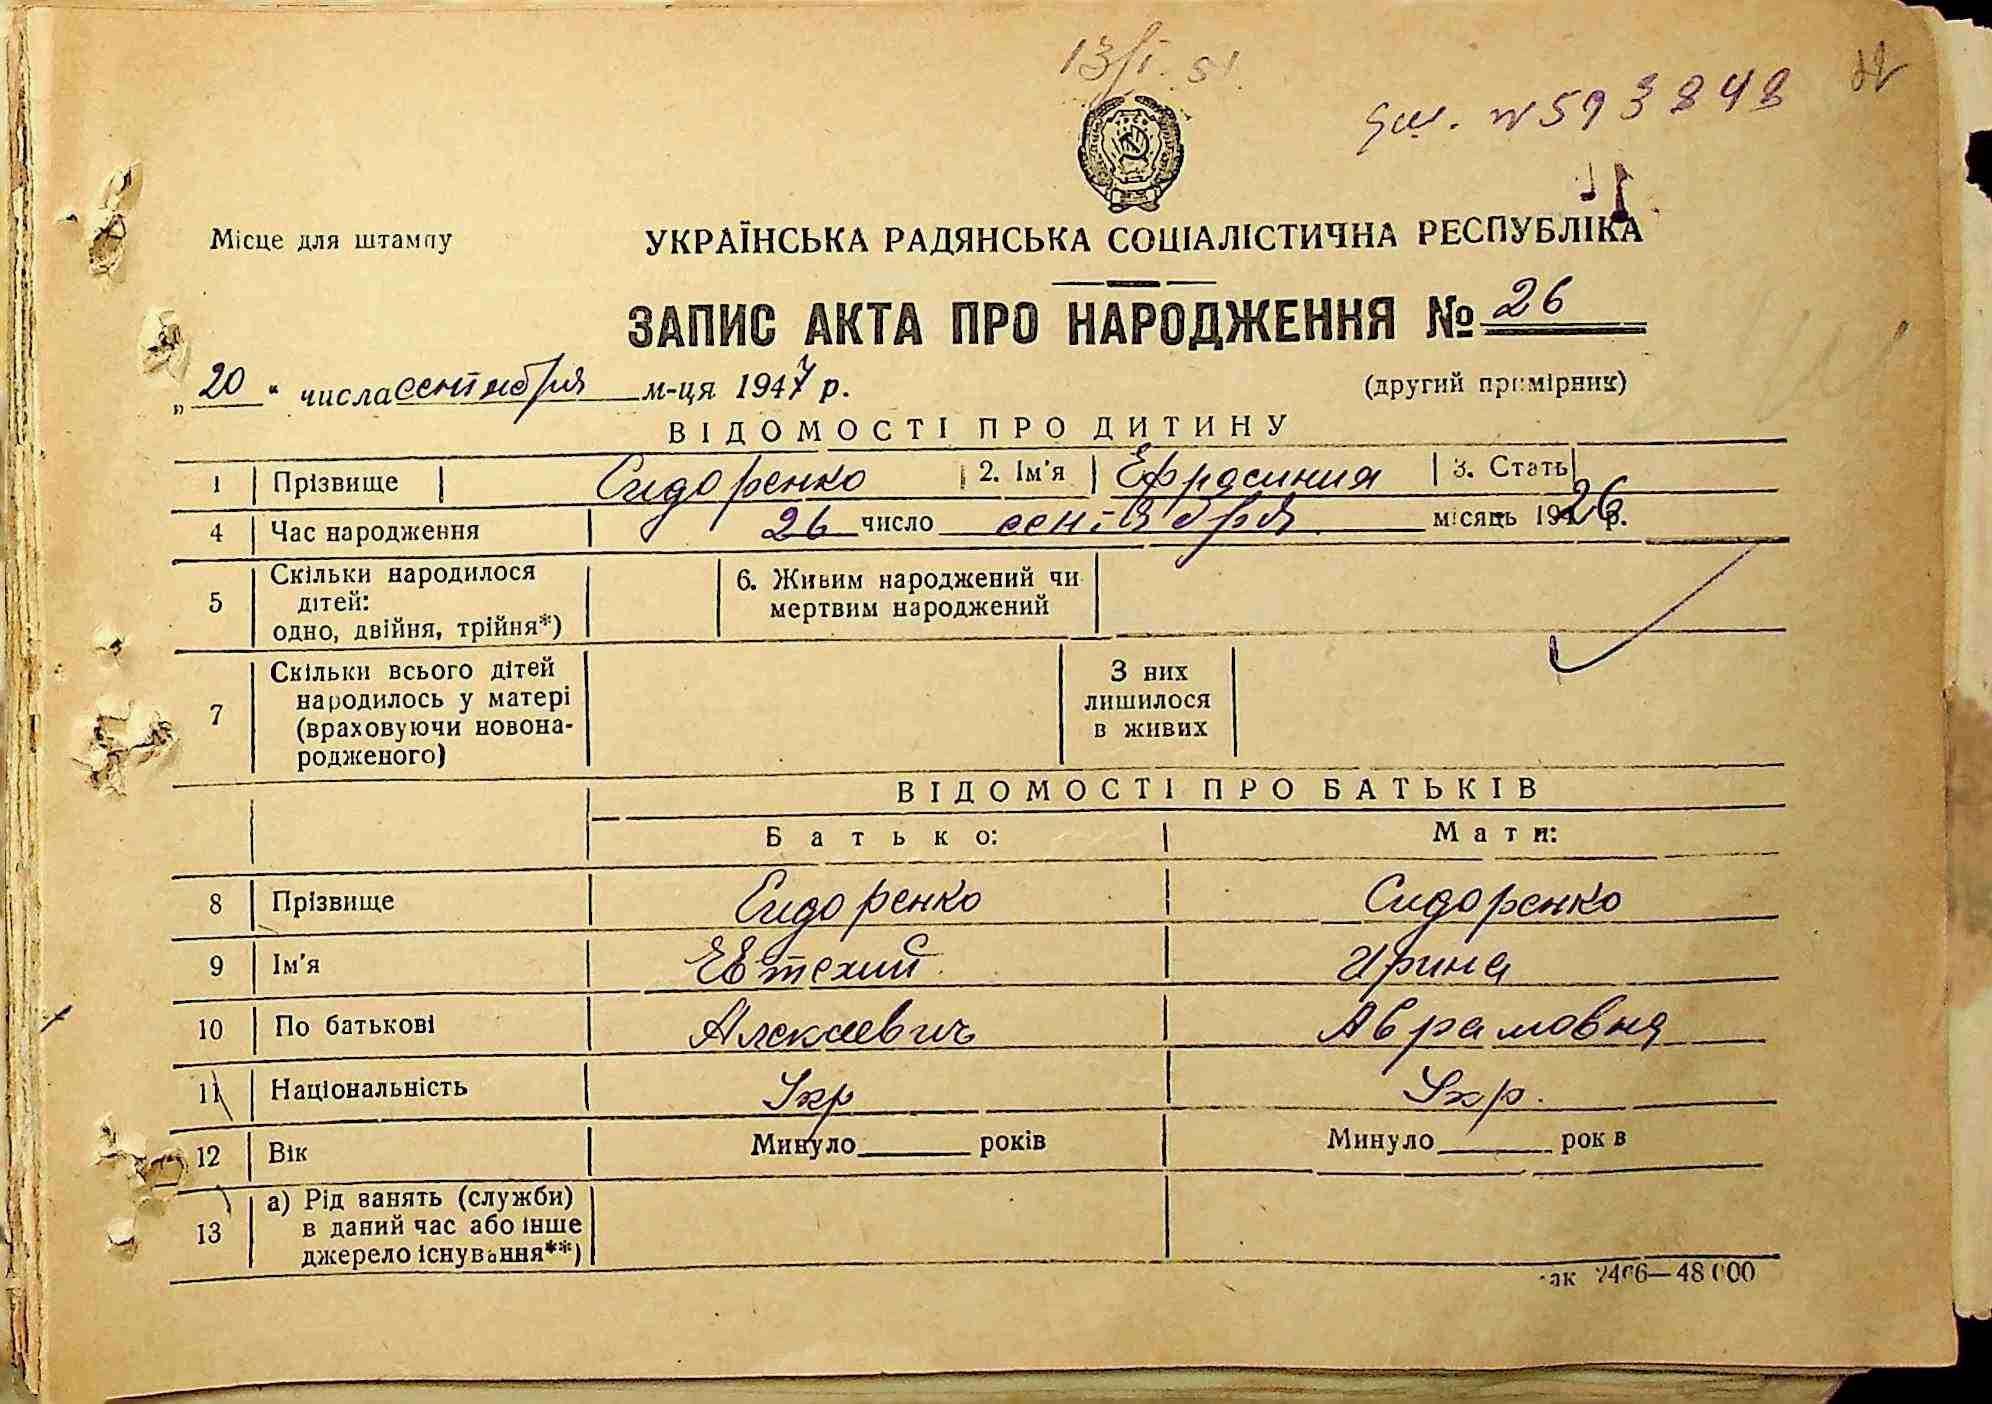 13/I. 51.
№ 593848
Місце для штампу
УКРАЇНСЬКА РАДЯНСЬКА СОЦІАЛІСТИЧНА РЕСПУБЛІКА
ЗАПИС АКТА ПРО НАРОДЖЕННЯ № 26
„ 20 “ числа сентября м-ця 1947 р.
(другий примірник)
ВІДОМОСТІ ПРО ДИТИНУ
1 Прізвище Сидоренко 2. Ім'я Ефросиния 3. Стать
4 Час народження 26 число сентября місяць 1926 р.
5 Скільки народилося
дітей:
одно, двійня, трійня*)
6. Живим народжений чи
мертвим народжений
7 Скільки всього дітей
народилось у матері
(враховуючи новона-
родженого)
З них
лишилося
в живих
ВІДОМОСТІ ПРО БАТЬКІВ
Батько: Мати:
8 Прізвище Сидоренко Сидоренко
9 Ім'я Евтехий Ирина
10 По батькові Алексеевич Аврамовна
11 Національність Укр Укр.
12 Вік Минуло років Минуло рок в
13 а) Рід занять (служби)
в даний час або інше
джерело існування**)
ак 2466—48 000